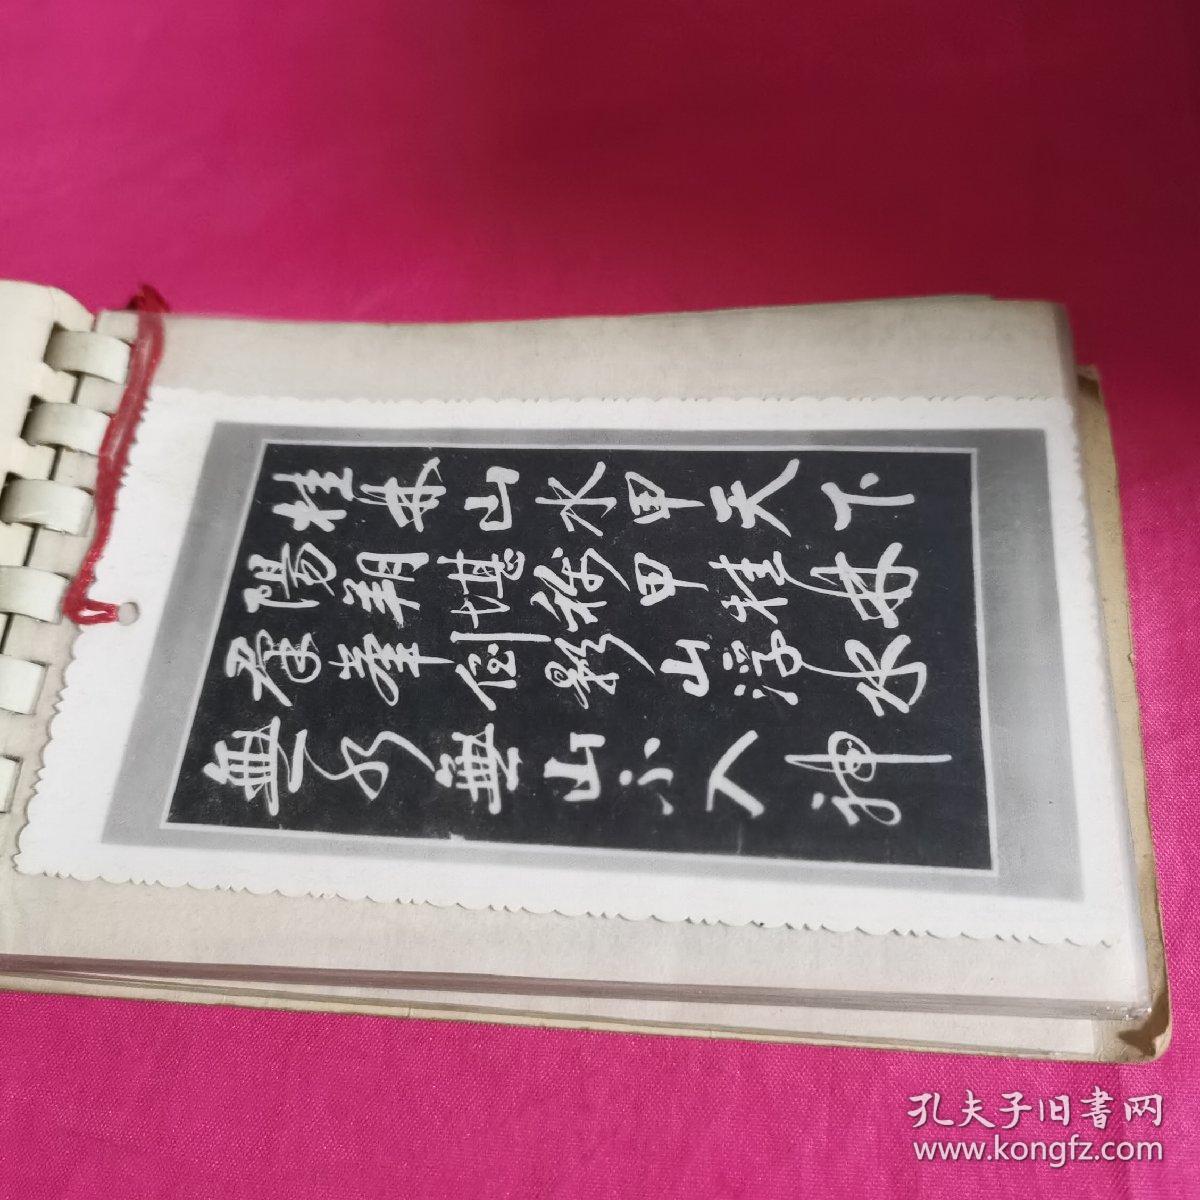 桂林山水甲天下
陽朔堪称甲桂林
羣峯倒影山浮水
無水無山不入神
孔夫子旧書网
www.kongfz.com